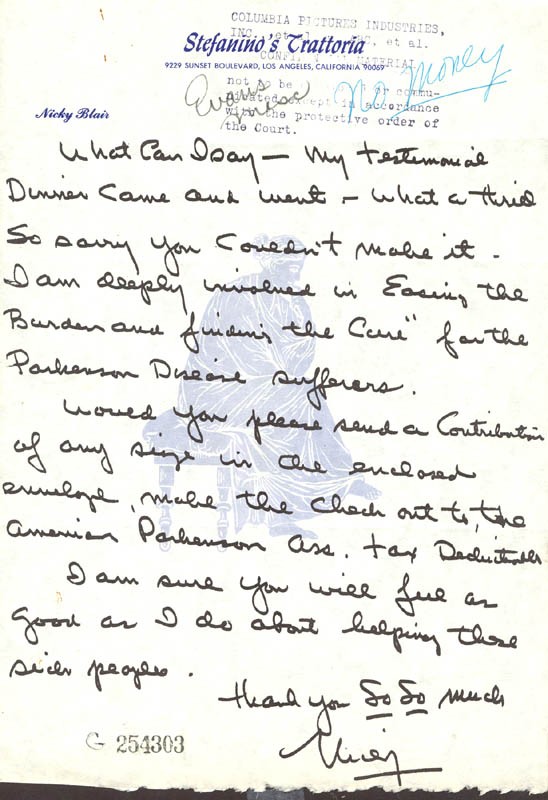 COLUMBIA PICTURES INDUSTRIES,
INC., et al. ABC, et al.
Stefanino's Trattoria
CONFI MATERIAL
9229 SUNSET BOULEVARD, LOS ANGELES, CALIFORNIA 90069
No Money
not to be or commu-
Evans
nicated except in accordance
Nicky Blair
with the protective order of
the Court.
What Can I say — My testimonial
Dinner Came and went — What a thrill
So sorry you Couldn't make it -
I am deeply involved in Easing the
Burden and finding the Cure" for the
Parkenson Disease sufferers.
Would you please send a Contribution
of any size in the enclosed
envelope, make the Check out to, the
American Parkenson Ass. tax Deductable
I am sure you will feel as
good as I do about helping these
sick peoples.
thank you So So much
Nicky
G 254303